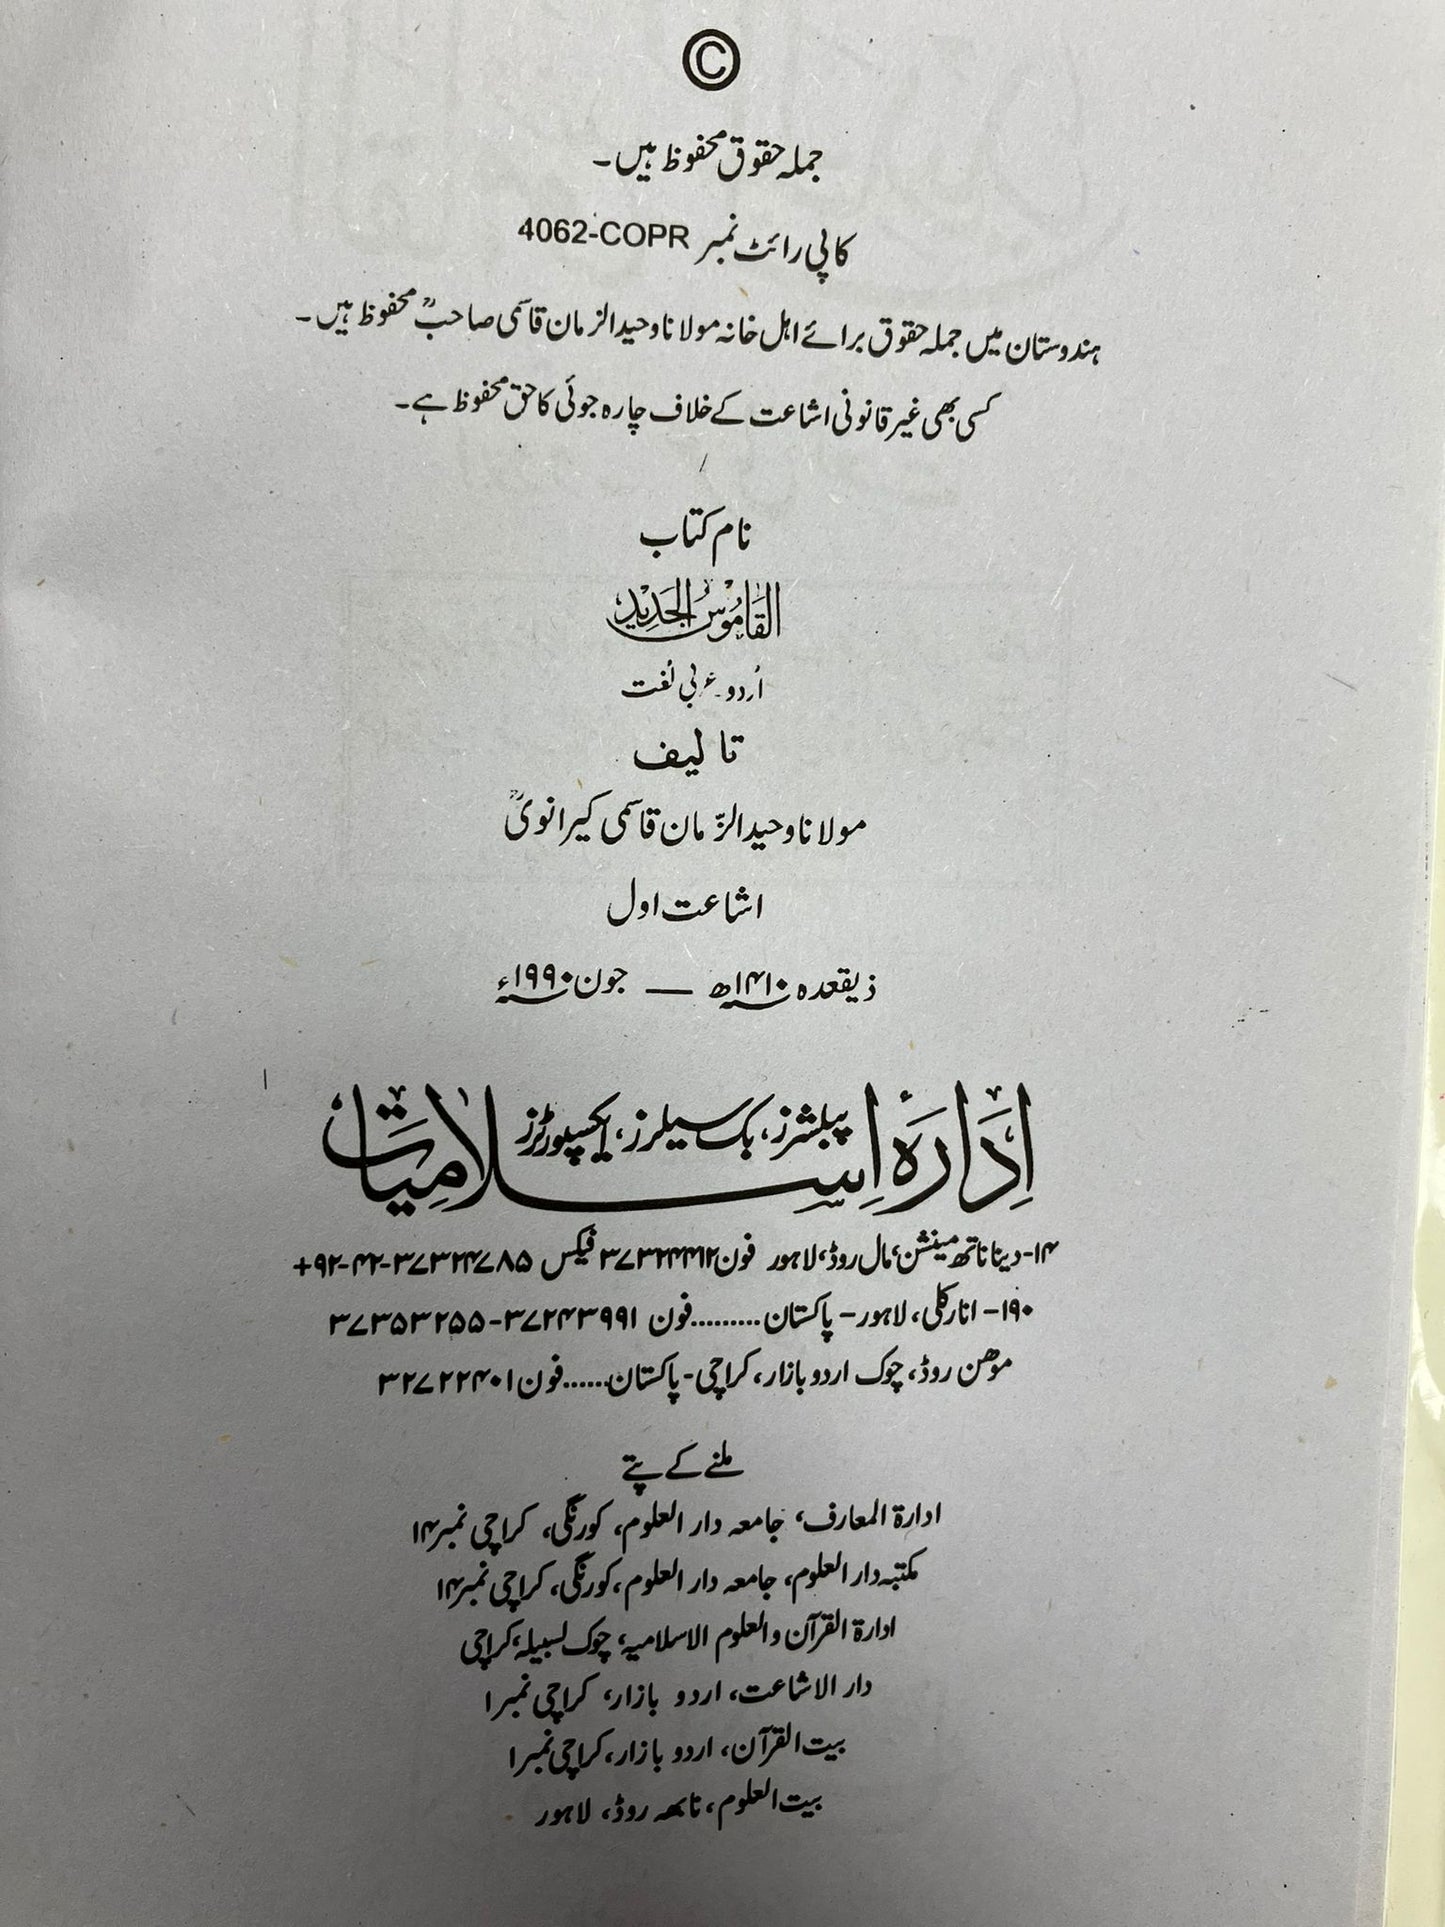 ©
جملہ حقوق محفوظ ہیں۔
کاپی رائٹ نمبر 4062-COPR
ہندوستان میں جملہ حقوق برائے اہل خانہ مولانا وحید الزمان قاسمی صاحبؒ محفوظ ہیں۔
کسی بھی غیر قانونی اشاعت کے خلاف چارہ جوئی کا حق محفوظ ہے۔
نام کتاب
القَامُوسُ الجَدِيْد
اُردو۔عربی لُغت
تالیف
مولانا وحید الزّمان قاسمی کیرانویؒ
اشاعت اول
ذیقعدہ ۱۴۱۰ھ — جون ۱۹۹۰ء
اِدَارَۂ اِسلامیات پبلشرز، بک سیلرز، ایکسپورٹرز
۱۴- دینا ناتھ مینشن، مال روڈ، لاہور فون ۳۷۳۲۴۴۱۲ فیکس ۳۷۳۲۴۷۸۵-۴۲-۹۲+
۱۹۰- انارکلی، لاہور- پاکستان.........فون ۳۷۲۴۳۹۹۱-۳۷۳۵۳۲۵۵
موھن روڈ، چوک اردو بازار، کراچی- پاکستان......فون ۳۲۷۲۲۴۰۱
ملنے کے پتے
ادارۃ المعارف، جامعہ دار العلوم، کورنگی، کراچی نمبر ۱۴
مکتبہ دار العلوم، جامعہ دار العلوم، کورنگی، کراچی نمبر ۱۴
ادارۃ القرآن والعلوم الاسلامیہ، چوک لسبیلہ، کراچی
دار الاشاعت، اردو بازار، کراچی نمبر ۱
بیت القرآن، اردو بازار، کراچی نمبر ۱
بیت العلوم، نابھہ روڈ، لاہور